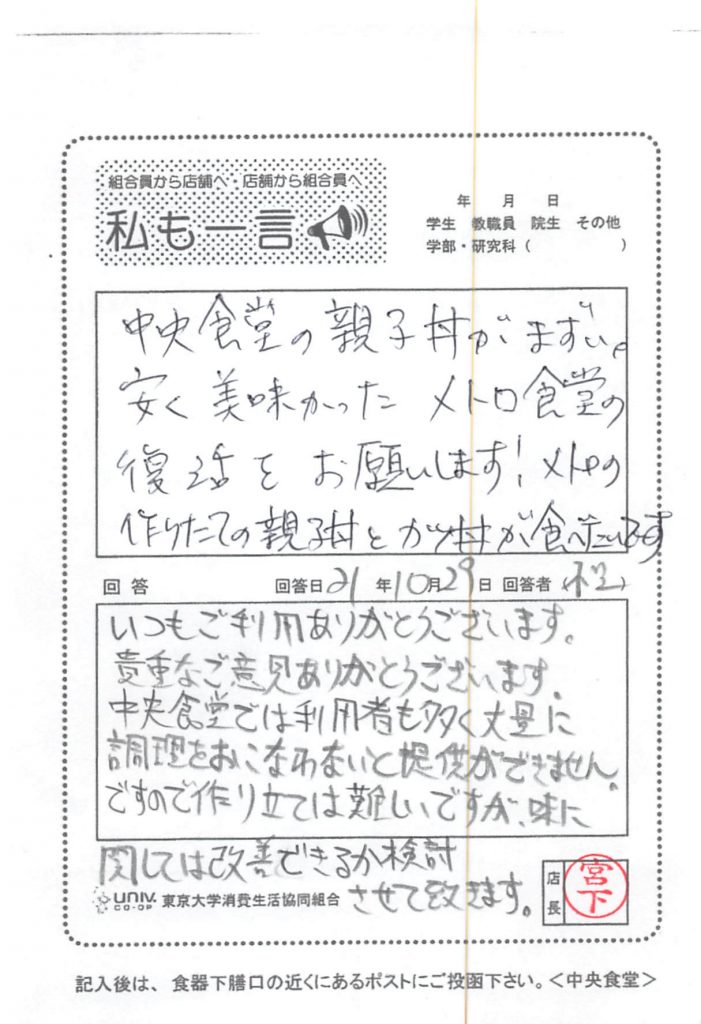 組合員から店舗へ・店舗から組合員へ
私も一言
年 月 日
学生 教職員 院生 その他
学部・研究科( )
中央食堂の親子丼がまずい。
安く美味かったメトロ食堂の
復活をお願いします!メトロの
作りたての親子丼とカツ丼が食べたいです
回答 回答日21年10月29日 回答者( )
いつもご利用ありがとうございます。
貴重なご意見ありがとうございます。
中央食堂では利用者も多く大量に
調理をおこなわないと提供ができません。
ですので作り立ては難しいですが、味に
関しては改善できるか検討
させて致きます。
UNIV. CO-OP 東京大学消費生活協同組合
店長 宮下
記入後は、食器下膳口の近くにあるポストにご投函下さい。<中央食堂>